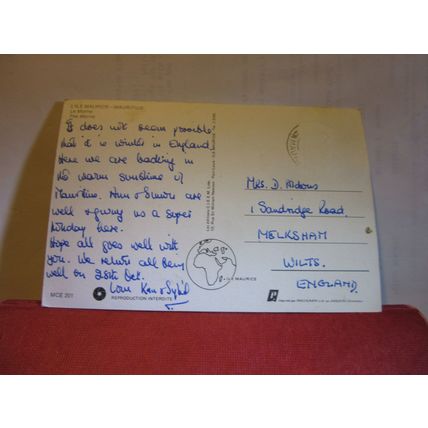 L'ILE MAURICE - MAURITIUS
Le Morne
The Morne
It does not seem possible
that it is winter in England
Here we are basking in
the warm sunshine of
Mauritius. Ann & are
well & giving us a super
holiday here.
Hope all goes well with
you. We return all being
well on 28th Oct.
Love Ken & Sybil
MCE 201
REPRODUCTION INTERDITE
ILE MAURICE
Mrs. D. Adams
1 Sandridge Road.
MELKSHAM
WILTS.
ENGLAND.